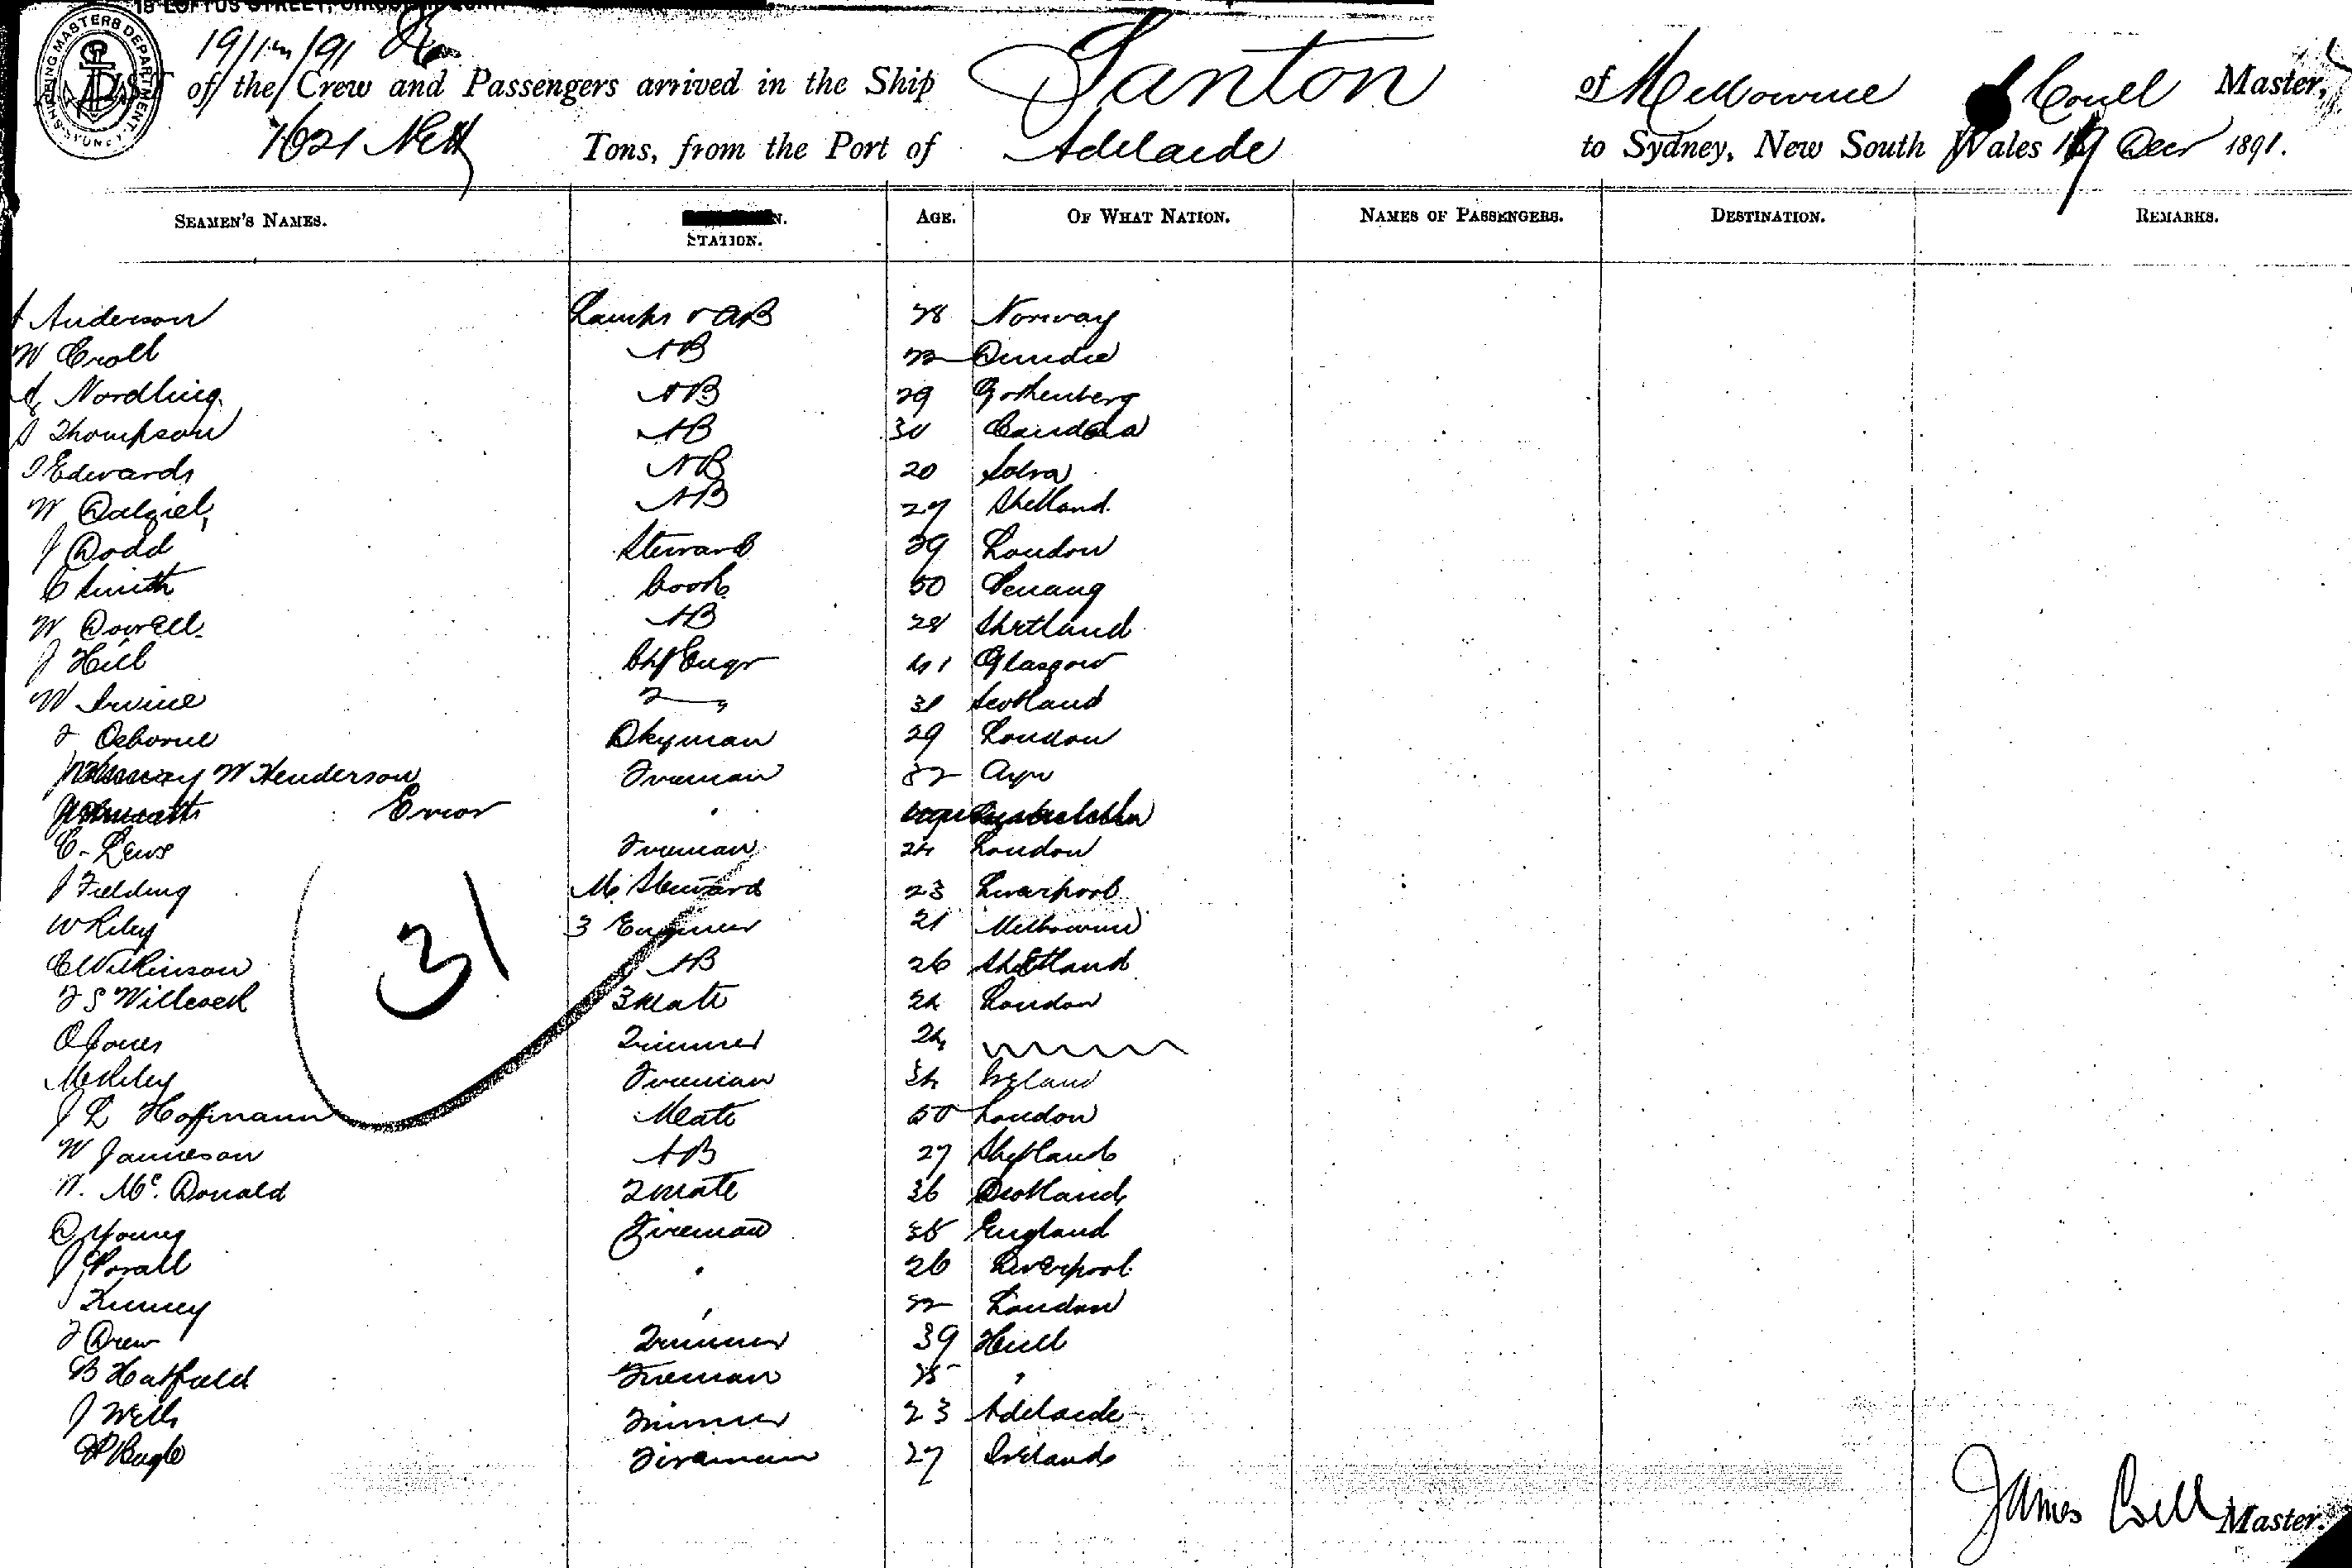 SHIPPING MASTERS DEPARTMENT
LIST of the Crew and Passengers arrived in the Ship Tanton of Melbourne J Coull Master,
1621 Nett Tons, from the Port of Adelaide to Sydney, New South Wales 19 Decr 1891.
SEAMEN'S NAMES. STATION. AGE. OF WHAT NATION. NAMES OF PASSENGERS. DESTINATION. REMARKS.
Anderson Lamps & AB 28 Norway
W Croll AB 22 Dundee
Nordling AB 29 Gothenberg
Thompson AB 30
Edwards AB 20 Solva
W Dalziel AB 27 Shetland
J Dodd Steward 39 London
C Smith Cook 50 Penang
W Dowell AB 28 Shetland
J Hill Chf Engr 41 Glasgow
W Irvine 2 " 31 Scotland
Osborne Dkyman 29 London
W Henderson Fireman 32 Ayr
Error
C. Lews Fireman 24 London
J Fielding M. Steward 23 Liverpool
W Riley 3 Engineer 21 Melbourne
C Wilkinson AB 26 Shetland
F S Willcock 3 Mate 24 London
O Jones Trimmer 24
M Riley Fireman 34 Ireland
J L Hoffmann Mate 50 London
W Jamieson AB 27 Shetland
N. Mc. Donald 2 Mate 36 Scotland
D Young Fireman 35 England
J Porall " 26 Liverpool
J Kenney " 22 London
F Drew Trimmer 39 Hull
B Hatfield Fireman 35 "
J Wells Trimmer 23 Adelaide
Fireman 27 Ireland
31
James Coull Master.